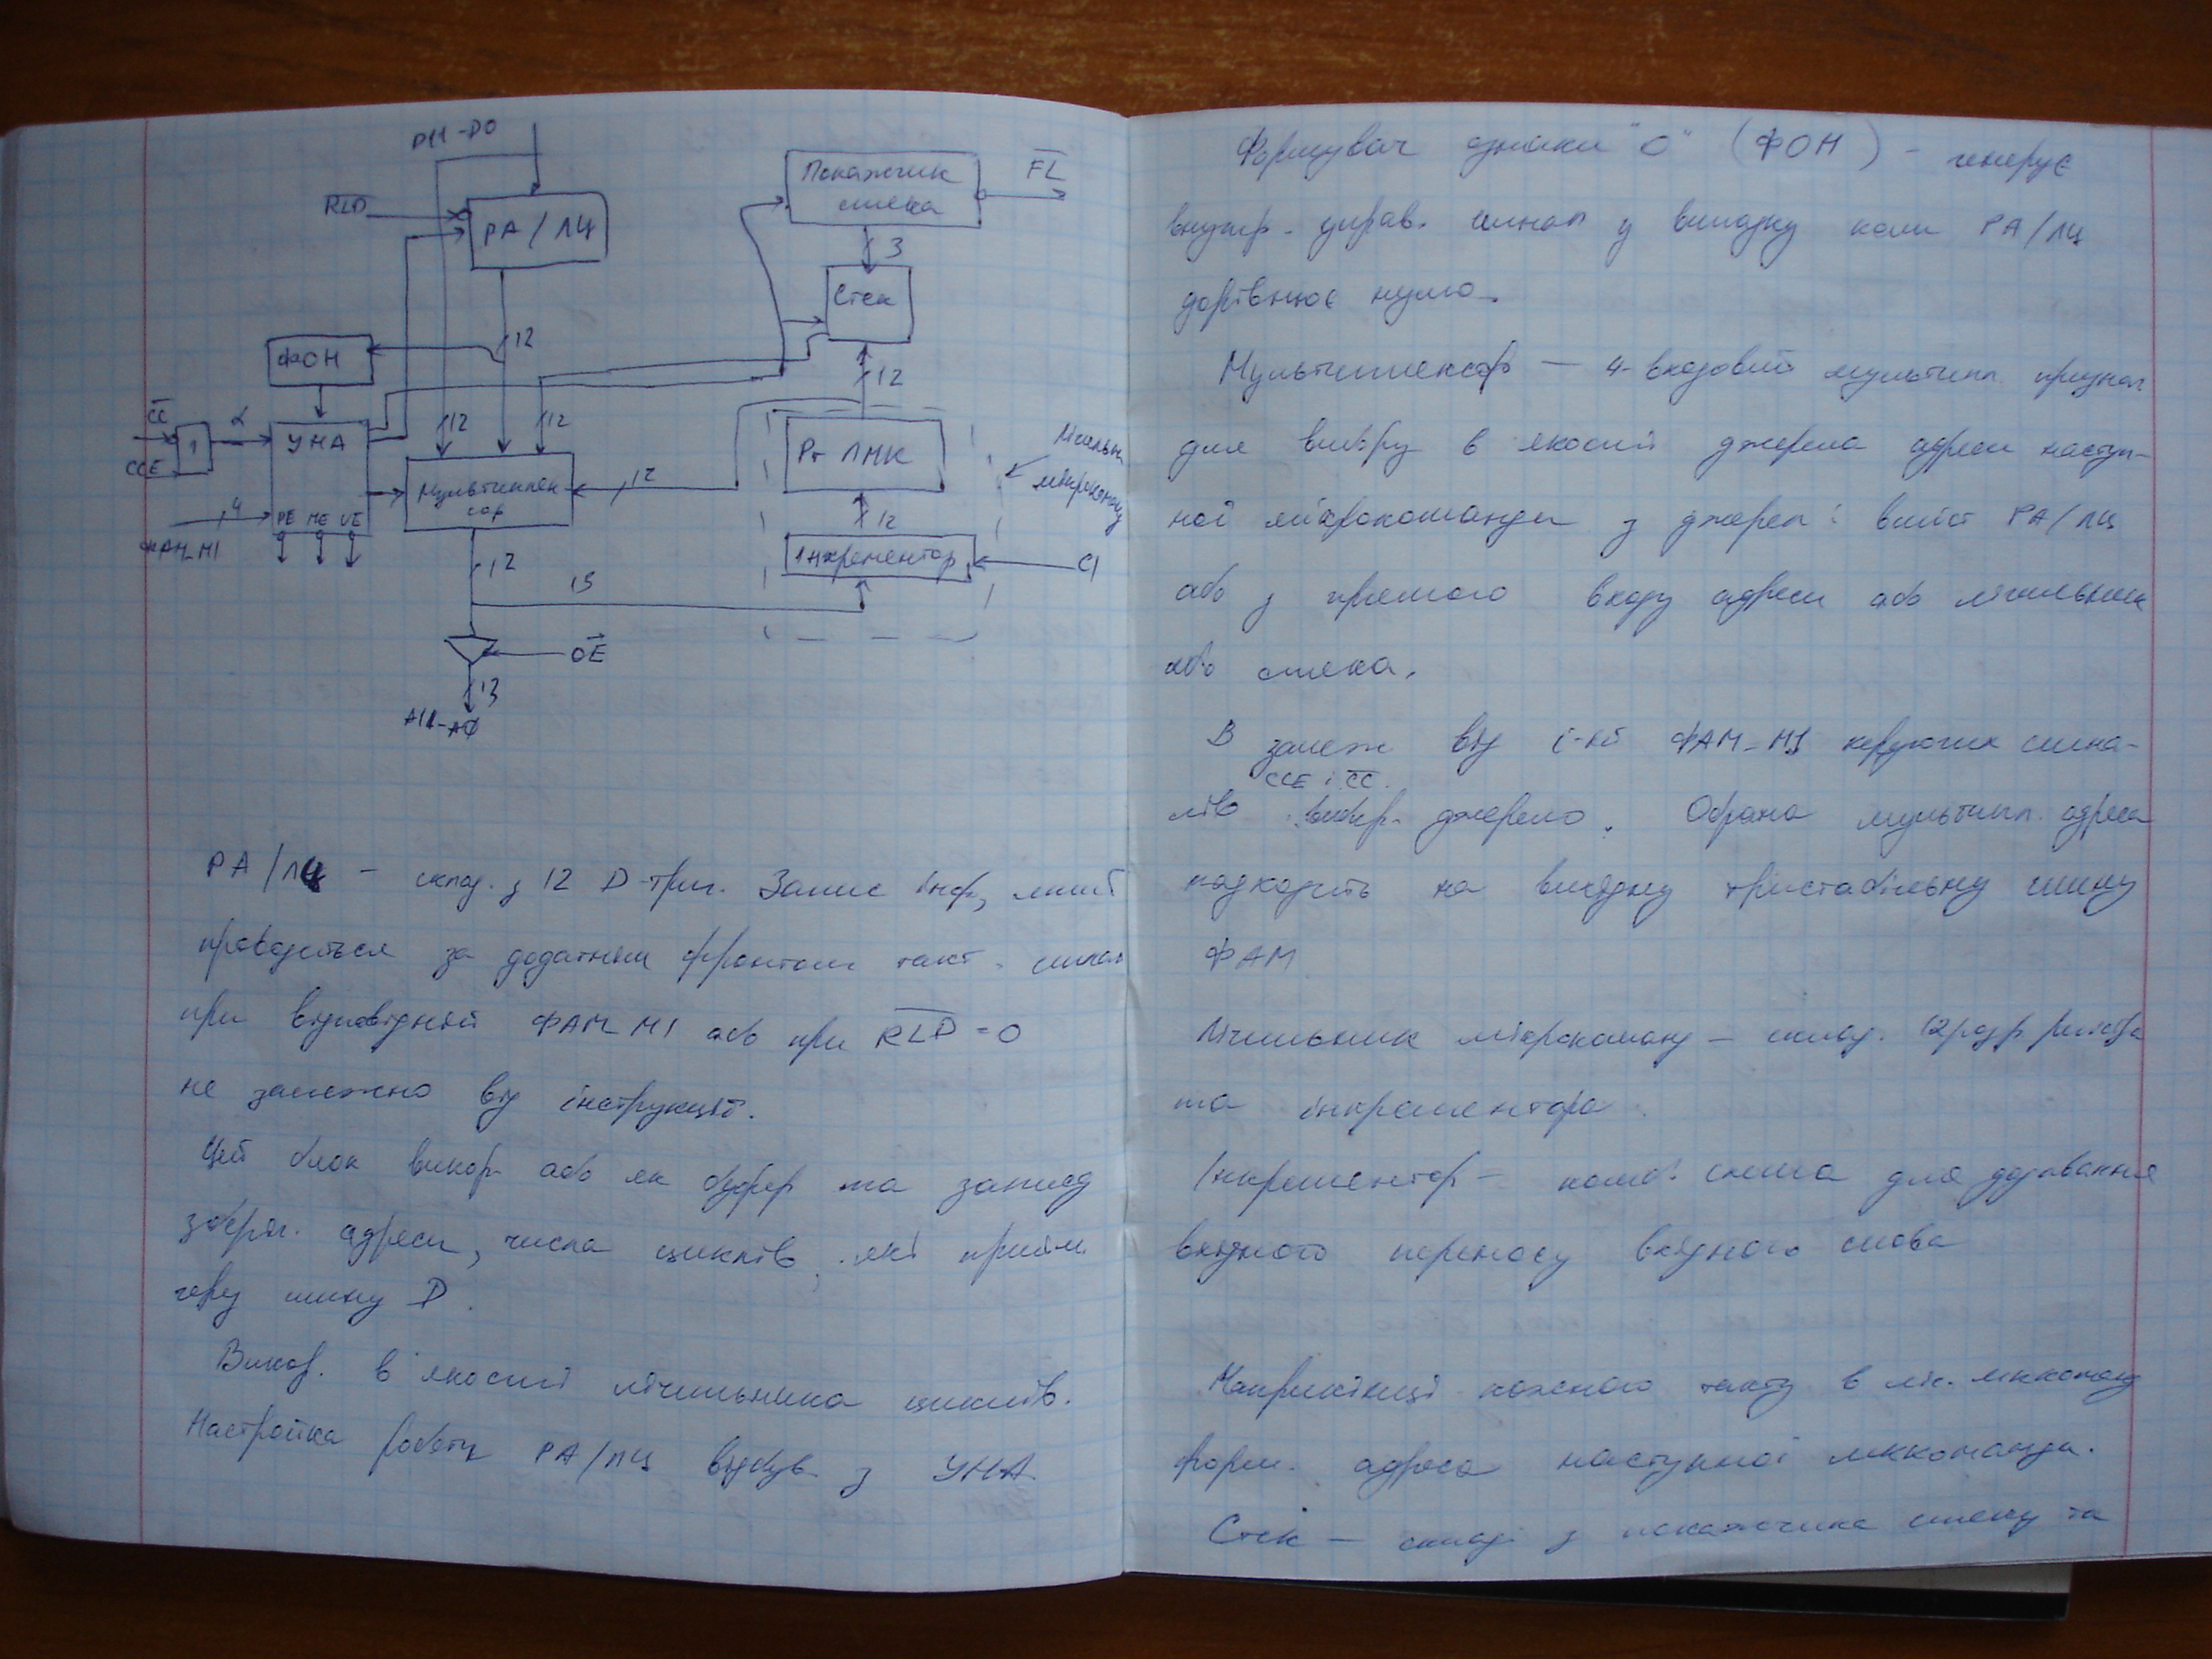 D11-D0
RLD
РА/ЛЦ
Покажчик
стека
FL
3
Стек
12
ФОН
12
CC
CCE
1
α
УНА
12
12
Мультиплек
сор
12
Рг ЛМК
Лічильн
мікрокоманд
4
ФАМ_МІ
PE ME VE
12
Інкрементор
CI
12
13
OE
13
A11-AΦ
РА/ЛЦ – склад. з 12 D-триг. Запис інф,
проводиться за додатнім фронтом такт. сигнал
при відповідній ФАМ МІ або при RLD = 0
не залежно від інструкцій.
Цей блок викор. або як буфер та
зберіг. адреси, числа циклів, які прийм.
через шину D.
Викор. в якості лічильника циклів.
Настройка роботи РА/ЛЦ відбув з УНА.
Формувач ознаки "0" (ФОН) – генерує
внутр. управ. сигнал у випадку коли РА/ЛЦ
дорівнює нулю.
Мультиплексор – 4-входовий мультипл. признач
для вибору в якості джерела адреси наступ-
ної мікрокоманди з джерел: вміст РА/ЛЦ
або з прямого входу адреси або лічильник
або стека.
В залеж від і-ії ФАМ_МІ керуючих сигна-
CCE і CC.
лів вибир. джерело. Обрана мультипл. адреса
надходить на вихідну тристабільну шину
ФАМ
Лічильник мікрокоманд – склад. 12розр. регістра
та інкрементора.
Інкрементор – комб. схема для додавання
вхідного переносу вхідного слова
Наприкінці кожного такту в ліч. міккоманд
форм. адреса наступної міккоманди.
Стек – склад з покажчика стеку та